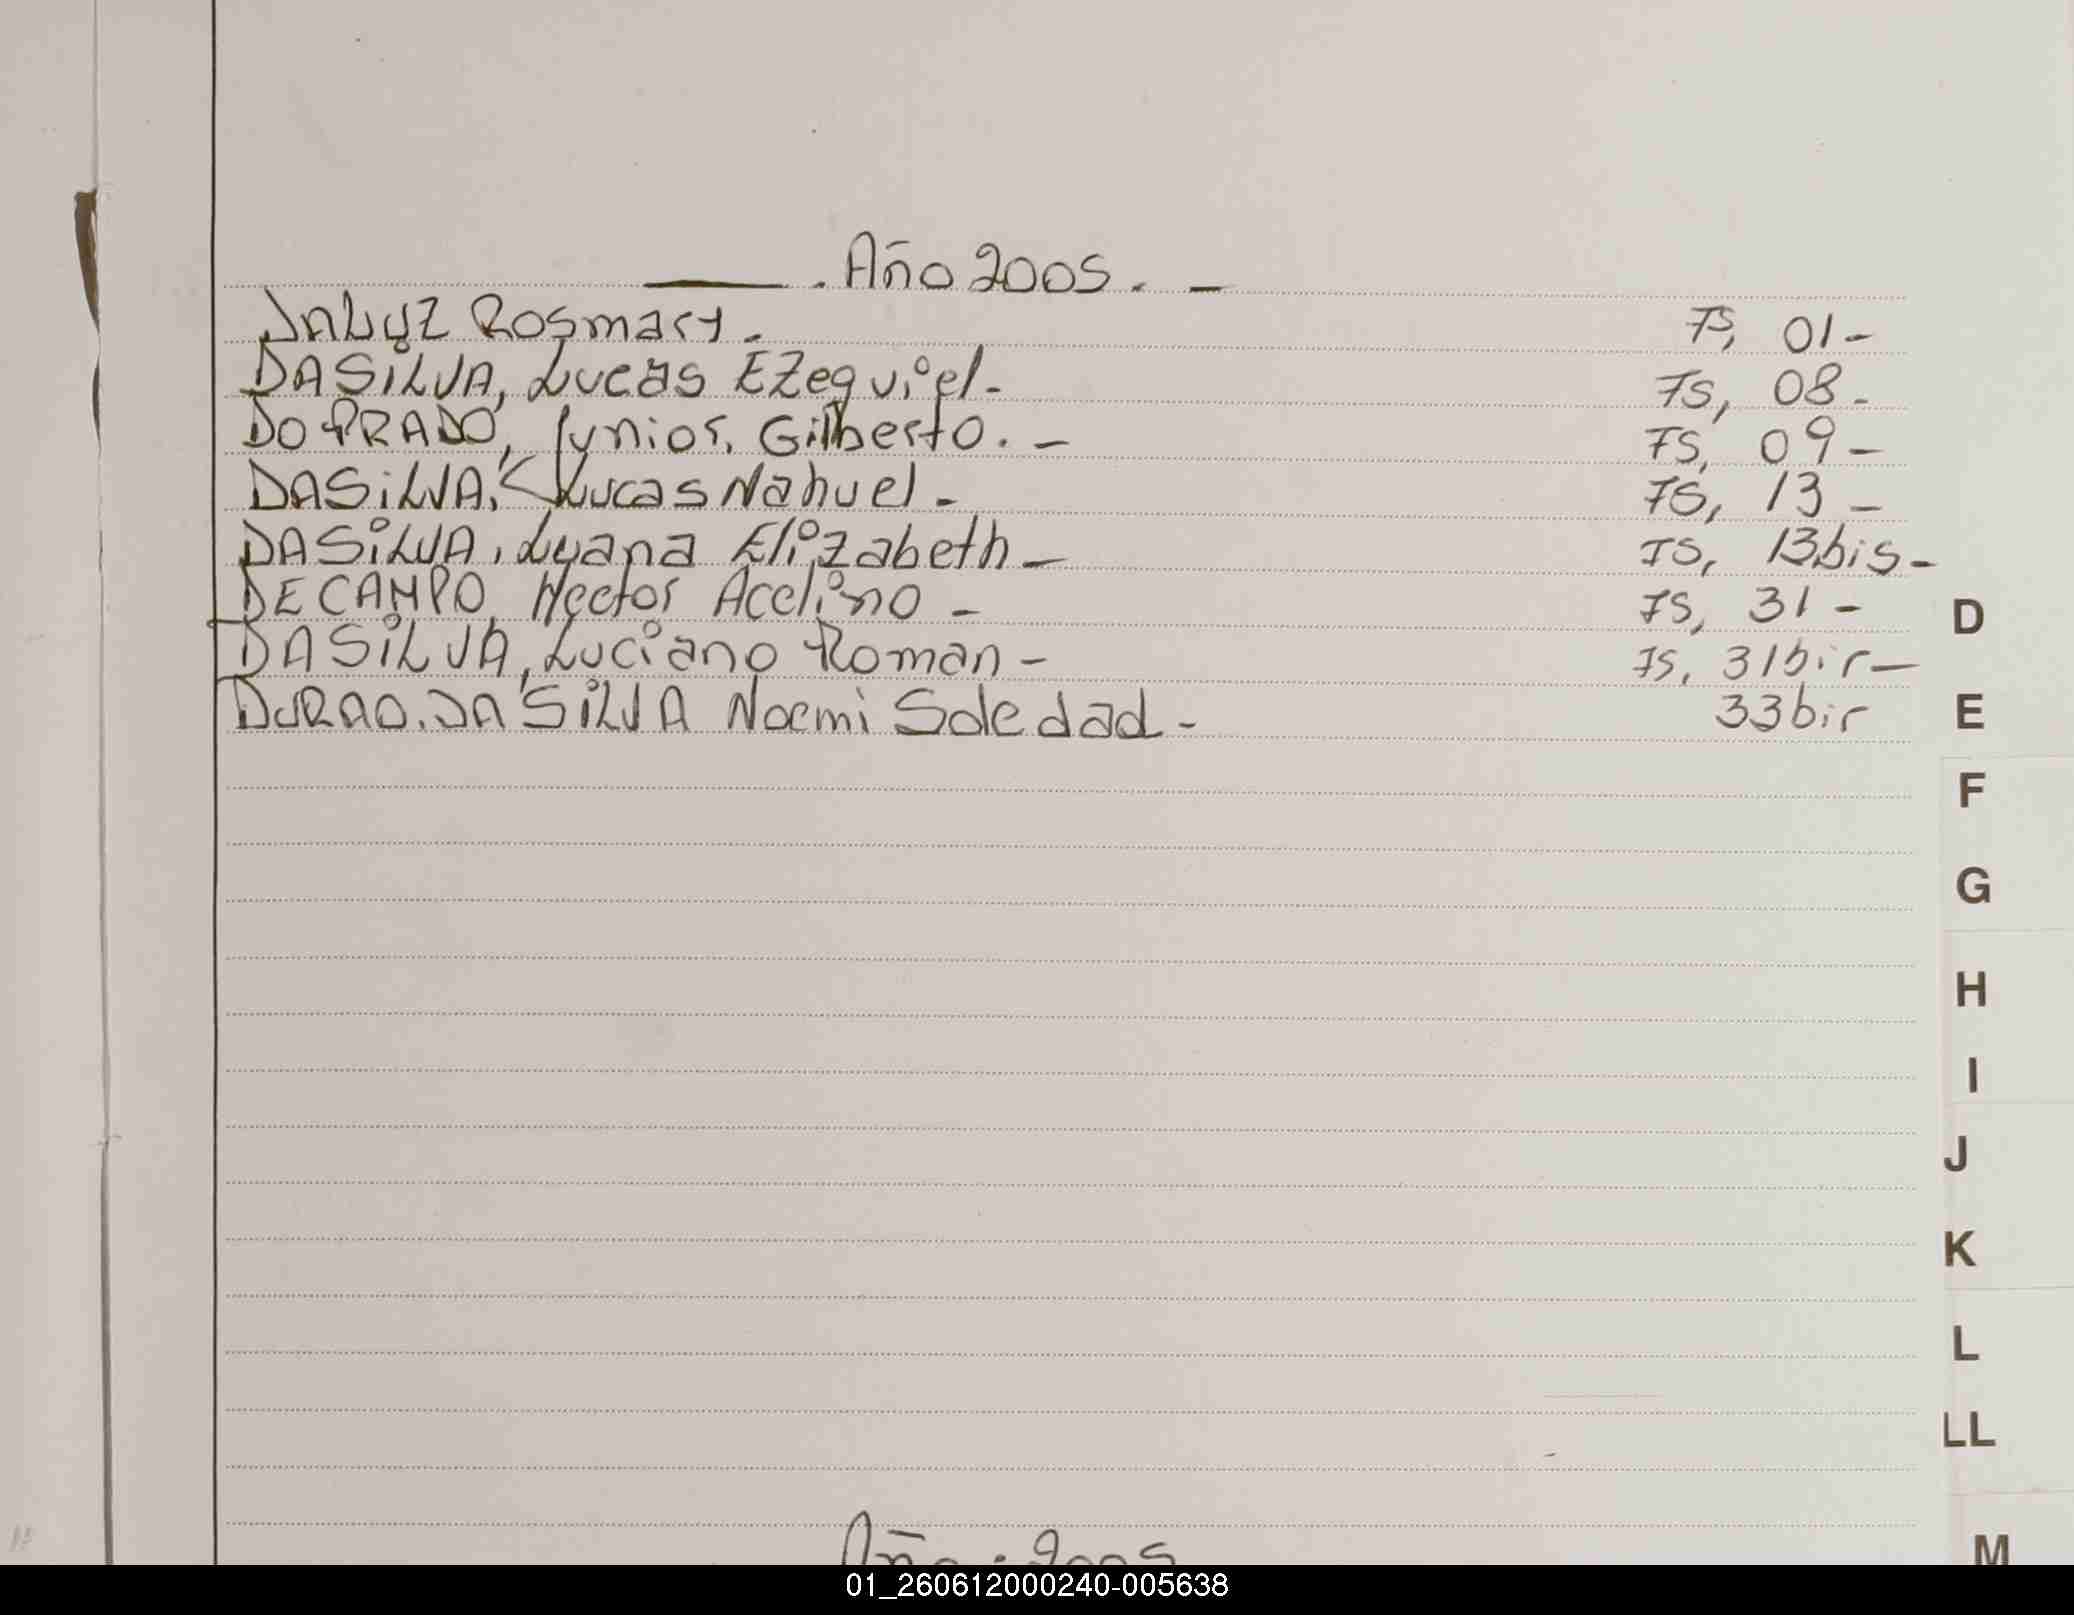 . Año 2005. -
DALUZ Rosmary. FS, 01-
DASILVA, Lucas EZequiel- FS, 08-
DO PRADO, Junior, Gilberto. - FS, 09-
DASILVA, Lucas Nahuel - FS, 13 -
DASILVA, Luana Elizabeth - FS, 13bis-
DE CAMPO, Hector Acelino - FS, 31 -
DASILVA, Luciano Roman - FS, 31bir-
DURAO. DA SILVA Noemi Soledad - 33bir
D
E
F
G
H
I
J
K
L
LL
M
Año . 2005
01_260612000240-005638